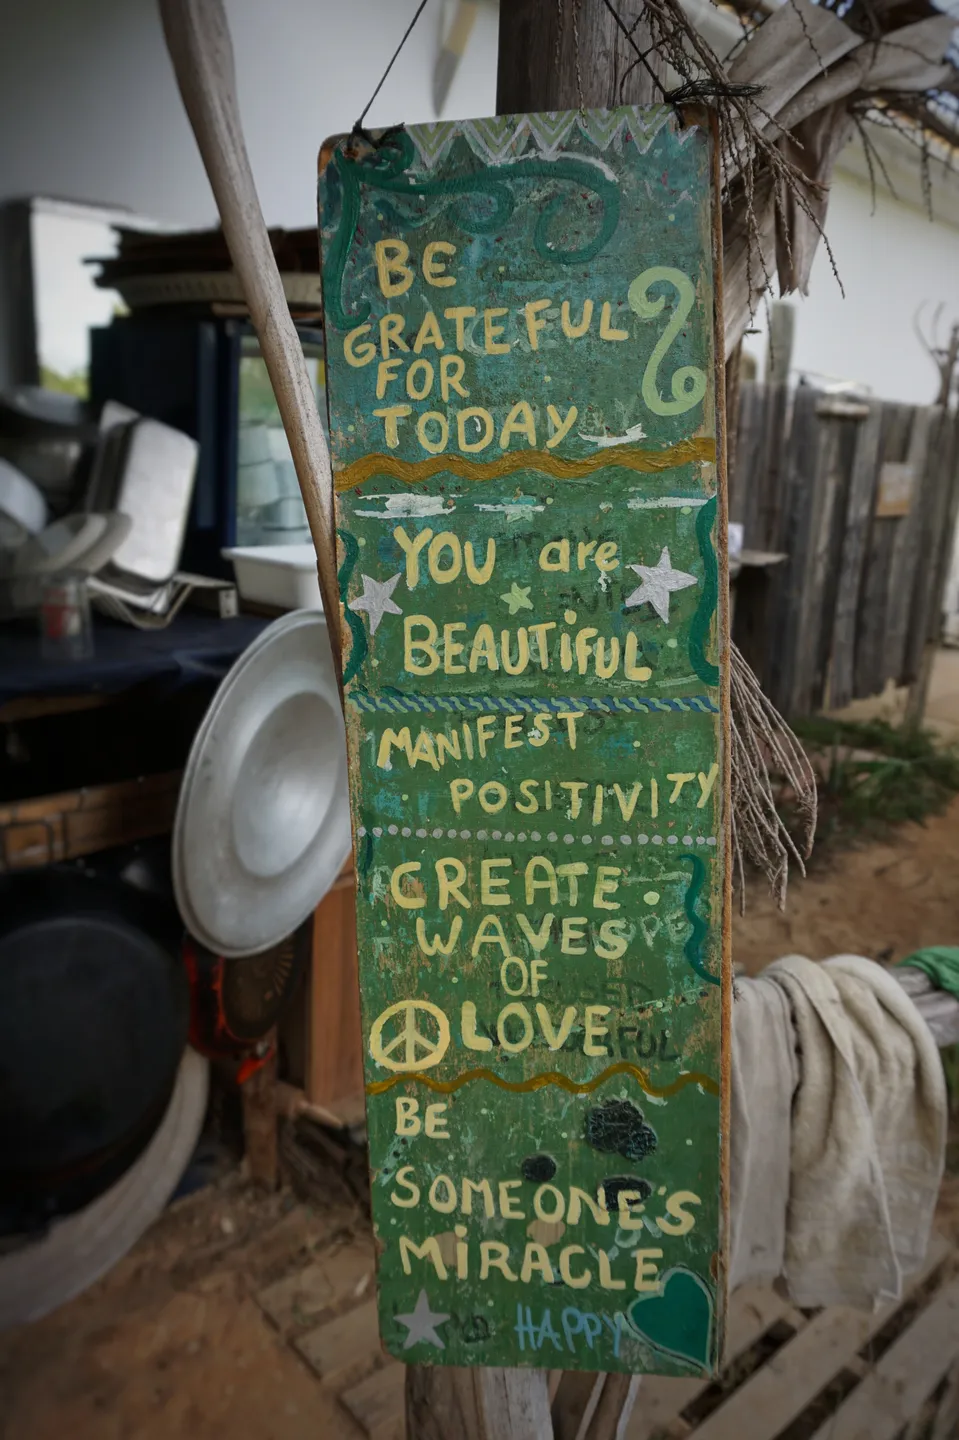 BE
GRATEFUL
FOR
TODAY
YOU are
BEAUTiFUL
MANIFEST
POSITIVITY
CREATE
WAVES
OF
LOVE
BE
SOMEONE'S
MiRACLE
HAPPY